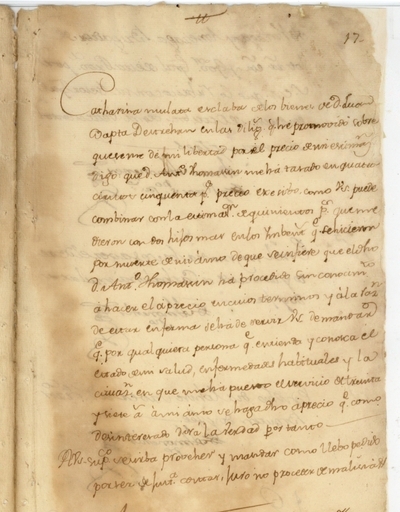 17
Catharina mulata esclaba de los bienes de D. Juan
Bapta Destrehan en las dilig.s q.e he promovido sobre
que se me dé mi libertad por el precio de mi estimaz.n
digo que D. Ant.o Thomasin me ha tasado en quatro
cientos cinquenta p.s precio excesibo como Vs. puede
combinar con la estimaz.n de quinientos p.s que me
dieron con dos hijos mas en los Imbent.s q.e se hicieron
por muerte de mi amo de que se infiere que el dho
D.n Ant.o Thomasin ha procedido sin conocim.to
a hacer el aprecio en cuios terminos y á la raz.n
de estar enferma se ha de servir Vs. de mandar
q.e por qualquiera persona q.e entienda y conosca el
estado de mi salud, enfermedades habituales y la
en que me ha puesto el servicio de treinta
y siete a.s á mi amo se haga dho aprecio q.e como
desinteresado dirá la verdad por tanto
A Vs. sup.co se sirba probeher y mandar como llebo pedido
por ser de just.a costas, juro no proceder de malicia &